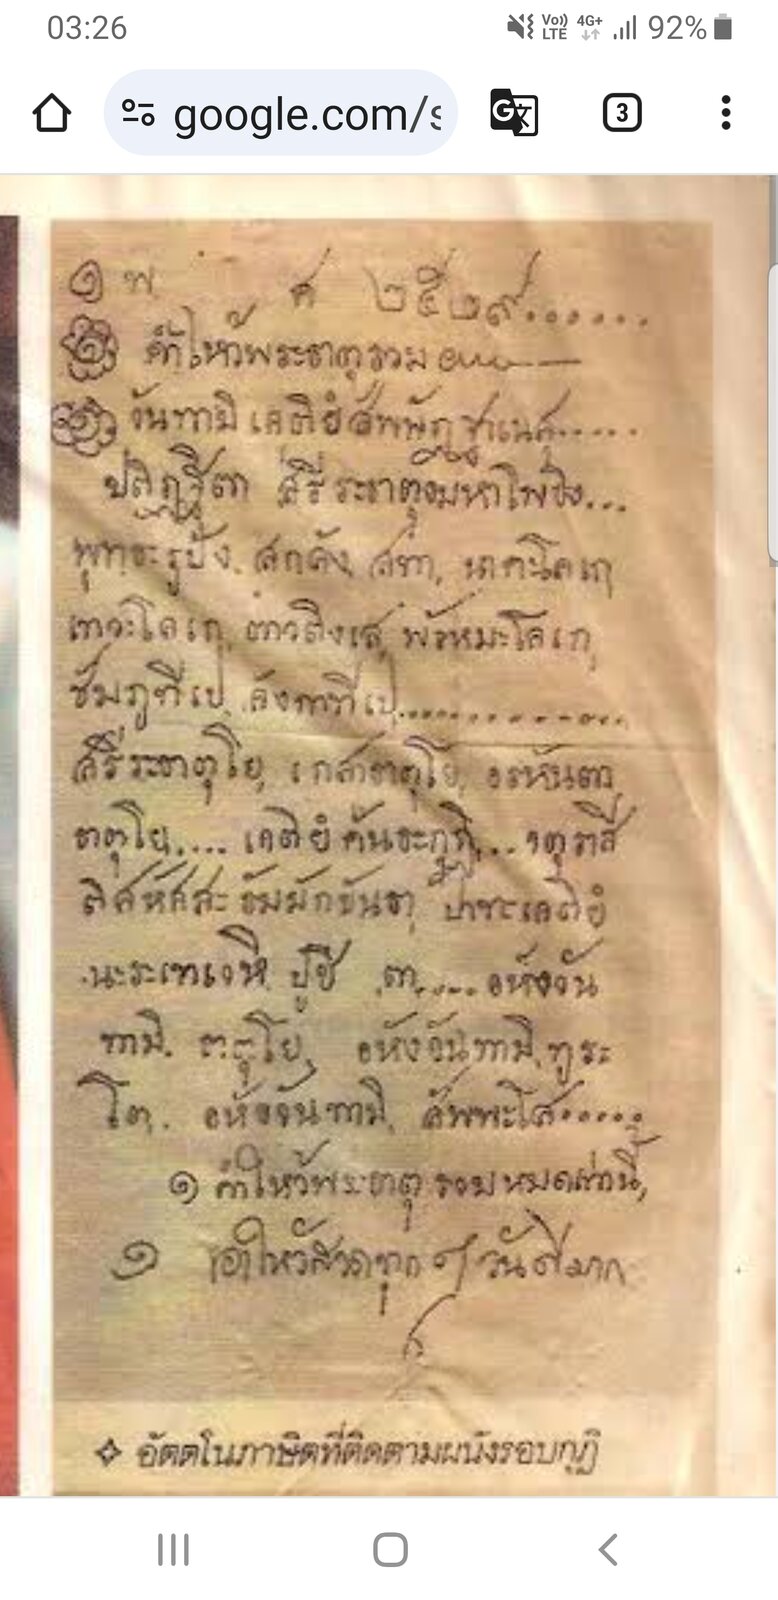 03:26
Vo)) LTE 4G+ 92%
google.com/s
3
๑ พ ศ ๒๕๒๙......
๑ คำไหว้พระธาตุรวม
๑ วันทามิ เจติยํ สัพพัฏ ฐาเนสุ.....
ปติฏฐิตา สรีระธาตุ มหาโพธิง...
พุทธะรูปัง, สกลัง, สทา, นาคะโลเก
เทวะโลเก, ตาวติงเส, พรัหมะโลเก,
ชัมภูทีเป, ลังกาทีเป,..............
สรีระธาตุโย, เกสาธาตุโย, อรหันตา
ธาตุโย.... เจติยํ คันธะกุฏิ,... จตุราสี
ติสหัสสะ ธัมมักขันธา, ปาทะเจติยํ
นะระเทเวหิ ปูชิ ตา.... อหังวัน
ทามิ. ธาตุโย, อหังวันทามิ, ทูระ
โต. อหังวันทามิ, สัพพะโส.....
๑ คำไหว้พระธาตุ รวมหมดเท่านี้,
๑ เอาไหว้สวดทุก ๆ วันดีมาก
❖ อัตตโนภาษิตที่ติดตามผนังรอบกุฏิ